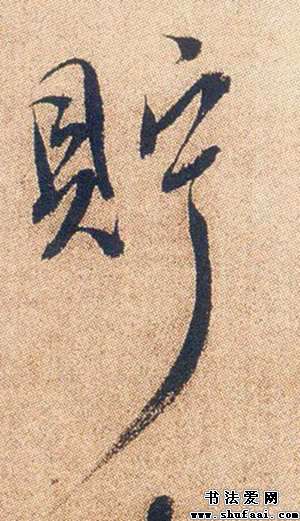 貯
书法爱网
www.shufaai.com